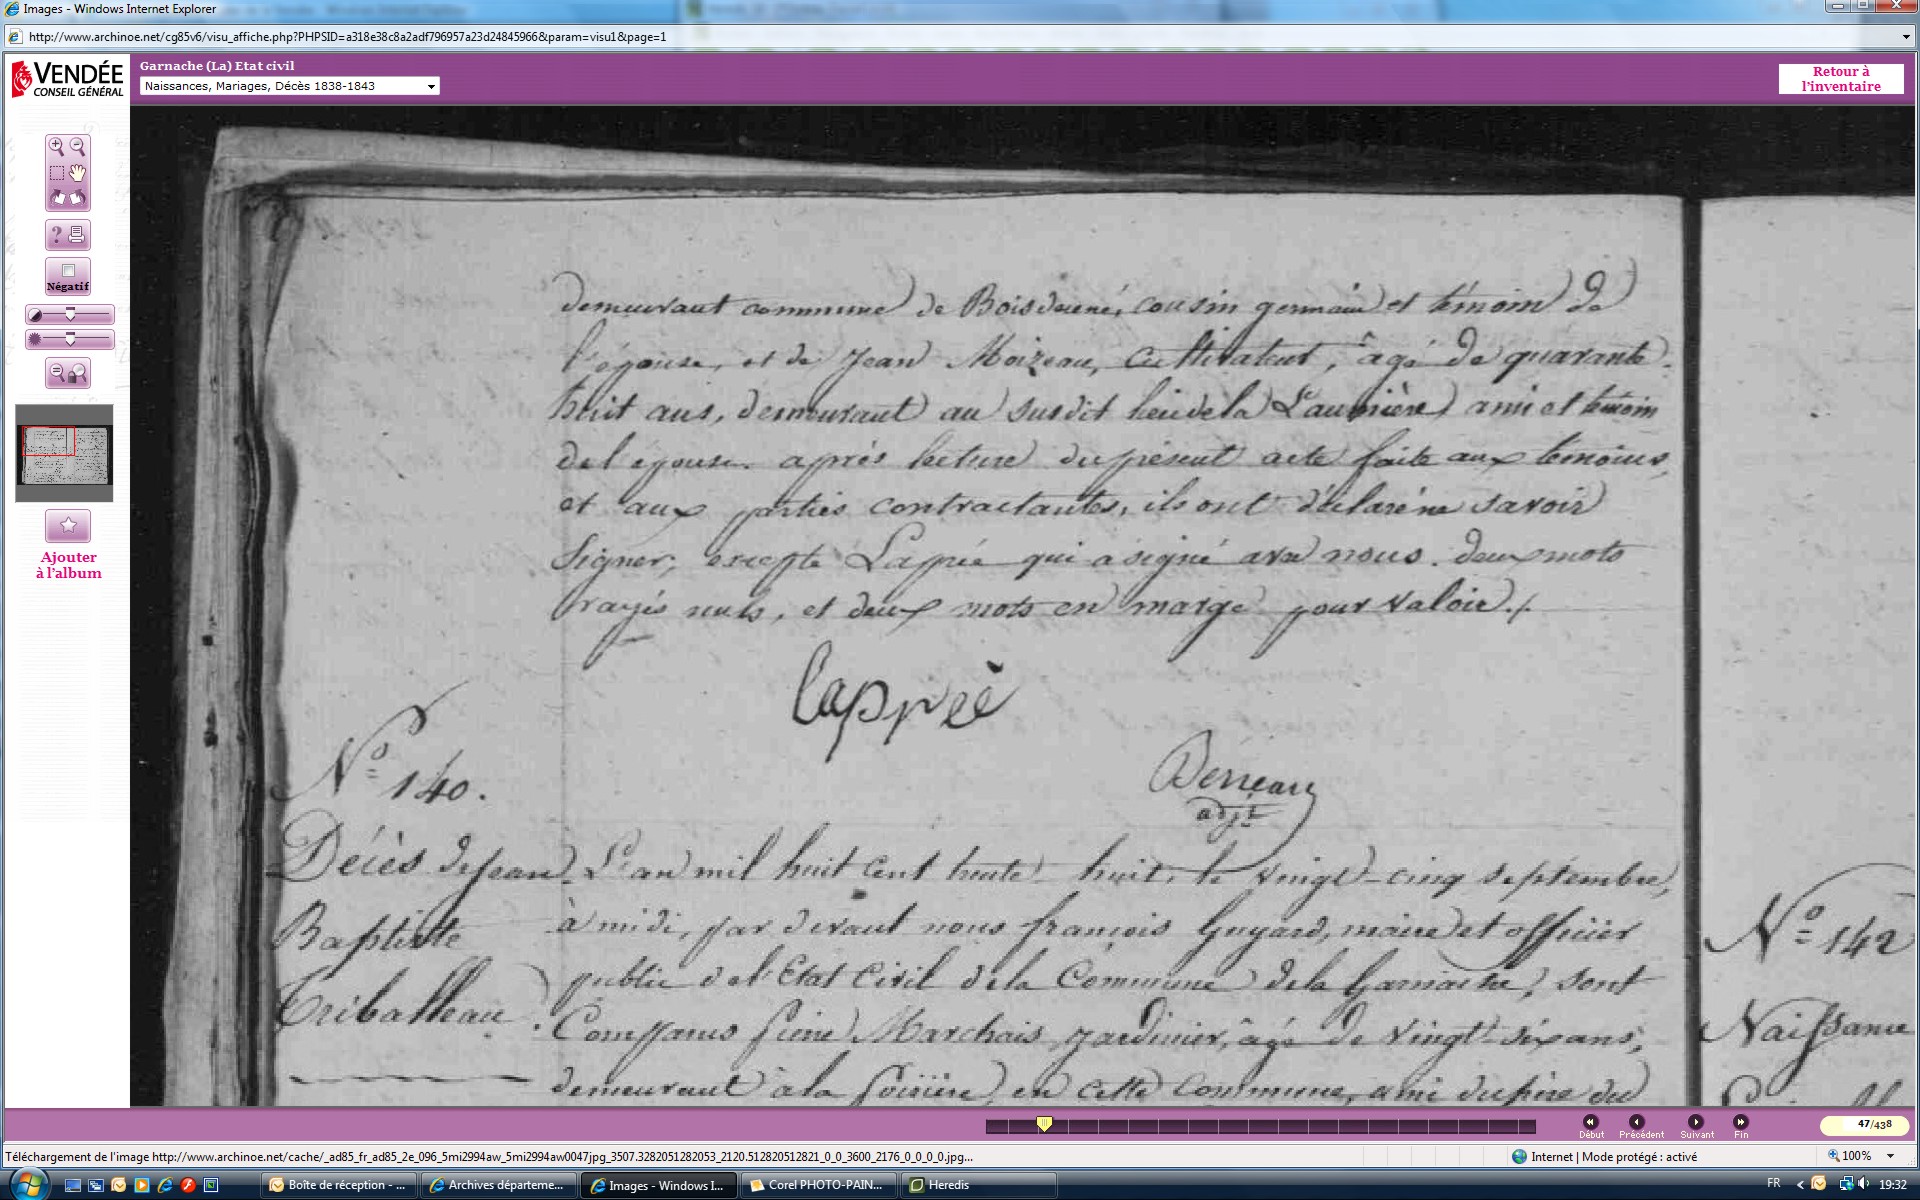 Images - Windows Internet Explorer
http://www.archinoe.net/cg85v6/visu_affiche.php?PHPSID=a318e38c8a2adf796957a23d24845966&param=visu1&page=1
VENDÉE
CONSEIL GÉNÉRAL
Garnache (La) Etat civil
Naissances, Mariages, Décès 1838-1843
Retour à
l'inventaire
Négatif
Ajouter
à l'album
demeurant commune de Boisdené, cousin germain et témoin de
l'épouse, et de Jean Moizeau, cultivateur, âgé de quarante-
huit ans, demeurant au susdit lieu de la Laumière ami et témoin
de l'épouse. après lecture du présent acte faite aux témoins,
et aux parties contractantes, ils ont déclaré ne savoir
signer, excepté Lapréé qui a signé avec nous. deux mots
rayés nuls, et deux mots en marge pour valoir./.
Lappréé
Berieau
adjt
No 140.
Décès de jean
Baptiste
Triballeau.
L'an mil huit cent trente-huit, le vingt-cinq septembre,
à midi, par devant nous françois Guyard, maire et officier
public de l'Etat Civil de la Commune de la Garnache, sont
Comparus Pierre Marchais, jardinier, âgé de vingt-six ans,
demeurant à la en cette commune, ami du père du
No 142
Naissance
Début
Précédent
Suivant
Fin
47/438
Téléchargement de l'image http://www.archinoe.net/cache/_ad85_fr_ad85_2e_096_5mi2994aw_5mi2994aw0047jpg_3507.3282051282053_2120.512820512821_0_0_3600_2176_0_0_0_0.jpg...
Internet | Mode protégé : activé
100%
Boîte de réception - ...
Archives départeme...
Images - Windows I...
Corel PHOTO-PAIN...
Heredis
FR
19:32